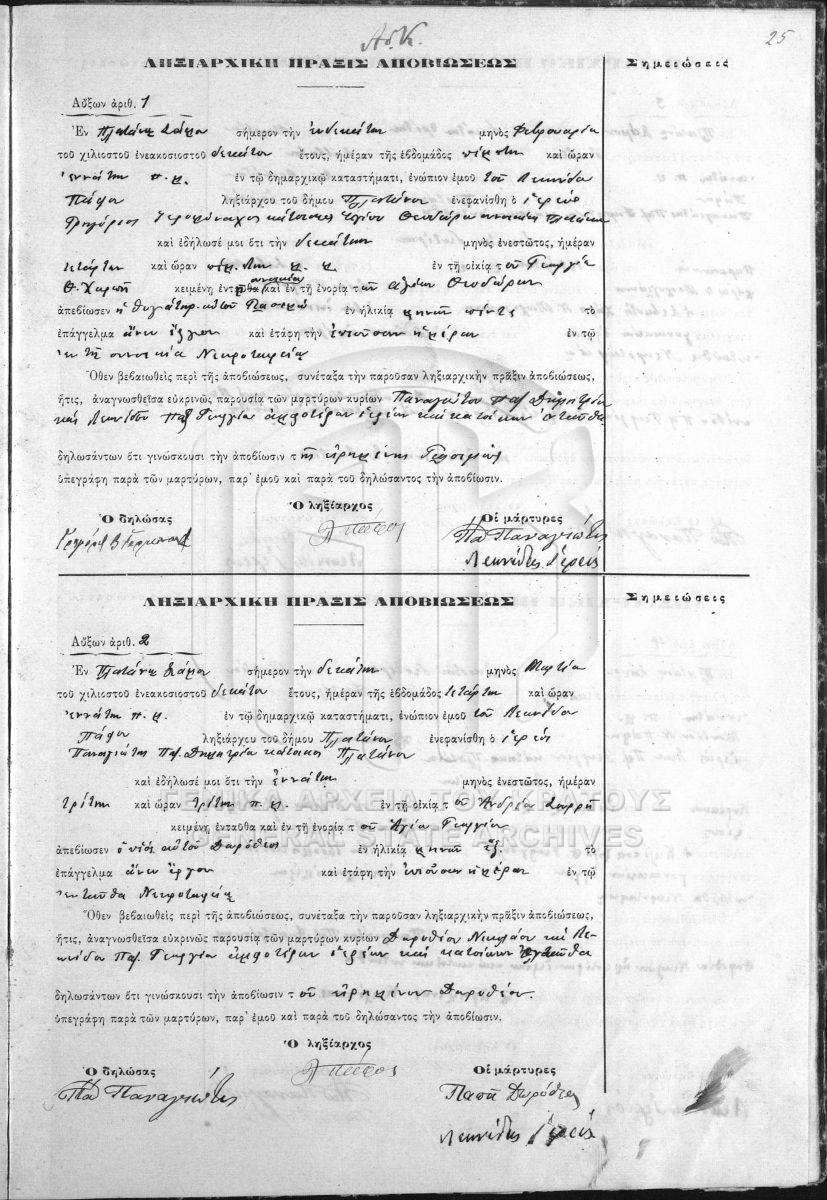 25
ΛΗΞΙΑΡΧΙΚΗ ΠΡΑΞΙΣ ΑΠΟΒΙΩΣΕΩΣ
Σημειώσεις
Αὔξων ἀριθ. 1
Ἐν Πλατάνῳ Σάμου σήμερον τὴν ἑνδεκάτην μηνὸς Φεβρουαρίου
τοῦ χιλιοστοῦ ἐνεακοσιοστοῦ δεκάτου ἔτους, ἡμέραν τῆς ἑβδομάδος πέμπτην καὶ ὥραν
ἐννάτην π. μ. ἐν τῷ δημαρχικῷ καταστήματι, ἐνώπιον ἐμοῦ τοῦ Λεωνίδα
Πάφου ληξιάρχου τοῦ δήμου Πλατάνου ἐνεφανίσθη ὁ ἱερεὺς
Γρηγόριος Ἱερομόναχος κάτοικος Ἁγίου Θεοδώρου συνοικίας Πλατάνου
καὶ ἐδήλωσέ μοι ὅτι τὴν δεκάτην μηνὸς ἐνεστῶτος, ἡμέραν
τετάρτην καὶ ὥραν πέμπτην μ. μ. ἐν τῇ οἰκίᾳ τοῦ Γεωργίου
Θ. κειμένῃ ἐνταῦθα συνοικίαν καὶ ἐν τῇ ἐνορίᾳ τῶν ἁγίων Θεοδώρων
ἀπεβίωσεν ἡ θυγάτηρ αὐτοῦ ἐν ἡλικίᾳ μηνῶν πέντε τὸ
ἐπάγγελμα ἄνευ ἔργου καὶ ἐτάφη τὴν ἐπιοῦσαν ἡμέραν ἐν τῷ
ἐν τῇ συνοικίᾳ Νεκροταφείῳ
Ὅθεν βεβαιωθεὶς περὶ τῆς ἀποβιώσεως, συνέταξα τὴν παροῦσαν ληξιαρχικὴν πρᾶξιν ἀποβιώσεως,
ἥτις, ἀναγνωσθεῖσα εὐκρινῶς παρουσίᾳ τῶν μαρτύρων κυρίων Παναγιώτου Παπ Δημητρίου
καὶ Λεωνίδου Παπ Γεωργίου ἀμφοτέρων ἱερέων καὶ κατοίκων ἐνταῦθα
δηλωσάντων ὅτι γινώσκουσι τὴν ἀποβίωσιν τῆς εἰρημένης
ὑπεγράφη παρὰ τῶν μαρτύρων, παρ' ἐμοῦ καὶ παρὰ τοῦ δηλώσαντος τὴν ἀποβίωσιν.
Ὁ δηλώσας Ὁ ληξίαρχος Οἱ μάρτυρες
Λ Πάφος Πα Παναγιώτης
Λεωνίδας Ἱερεύς
ΛΗΞΙΑΡΧΙΚΗ ΠΡΑΞΙΣ ΑΠΟΒΙΩΣΕΩΣ
Σημειώσεις
Αὔξων ἀριθ. 2
Ἐν Πλατάνῳ Σάμου σήμερον τὴν δεκάτην μηνὸς Μαρτίου
τοῦ χιλιοστοῦ ἐνεακοσιοστοῦ δεκάτου ἔτους, ἡμέραν τῆς ἑβδομάδος τετάρτην καὶ ὥραν
ἐννάτην π. μ. ἐν τῷ δημαρχικῷ καταστήματι, ἐνώπιον ἐμοῦ τοῦ Λεωνίδα
Πάφου ληξιάρχου τοῦ δήμου Πλατάνου ἐνεφανίσθη ὁ ἱερεύς
Παναγιώτης Παπ. Δημητρίου κάτοικος Πλατάνου
καὶ ἐδήλωσέ μοι ὅτι τὴν ἐννάτην μηνὸς ἐνεστῶτος, ἡμέραν
τρίτην καὶ ὥραν τρίτην π. μ. ἐν τῇ οἰκίᾳ τοῦ Ἀνδρέου
ΓΕΝΙΚΑ ΑΡΧΕΙΑ ΤΟΥ ΚΡΑΤΟΥΣ
κειμένῃ ἐνταῦθα καὶ ἐν τῇ ἐνορίᾳ τοῦ Ἁγίου Γεωργίου
GENERAL STATE ARCHIVES
ἀπεβίωσεν ὁ υἱὸς αὐτοῦ Δωρόθεος ἐν ἡλικίᾳ μηνῶν ἕξ τὸ
ἐπάγγελμα ἄνευ ἔργου καὶ ἐτάφη τὴν ἐπιοῦσαν ἡμέραν ἐν τῷ
ἐνταῦθα Νεκροταφείῳ
Ὅθεν βεβαιωθεὶς περὶ τῆς ἀποβιώσεως, συνέταξα τὴν παροῦσαν ληξιαρχικὴν πρᾶξιν ἀποβιώσεως,
ἥτις, ἀναγνωσθεῖσα εὐκρινῶς παρουσίᾳ τῶν μαρτύρων κυρίων Δωροθέου Νικολάου καὶ Λε-
ωνίδου Παπ. Γεωργίου ἀμφοτέρων ἱερέων καὶ κατοίκων ἐνταῦθα
δηλωσάντων ὅτι γινώσκουσι τὴν ἀποβίωσιν τοῦ εἰρημένου Δωροθέου.
ὑπεγράφη παρὰ τῶν μαρτύρων, παρ' ἐμοῦ καὶ παρὰ τοῦ δηλώσαντος τὴν ἀποβίωσιν.
Ὁ ληξίαρχος
Ὁ δηλώσας Λ Πάφος Οἱ μάρτυρες
Πα Παναγιώτης Παπᾶ Δωρόθεος
Λεωνίδας Ἱερεύς